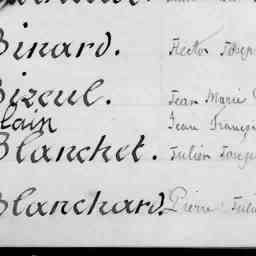 Binard. Hector Joseph
Bizeul. Jean Marie
Blain Jean François
Blanchet. Julien Joseph
Blanchard. Pierre Julien